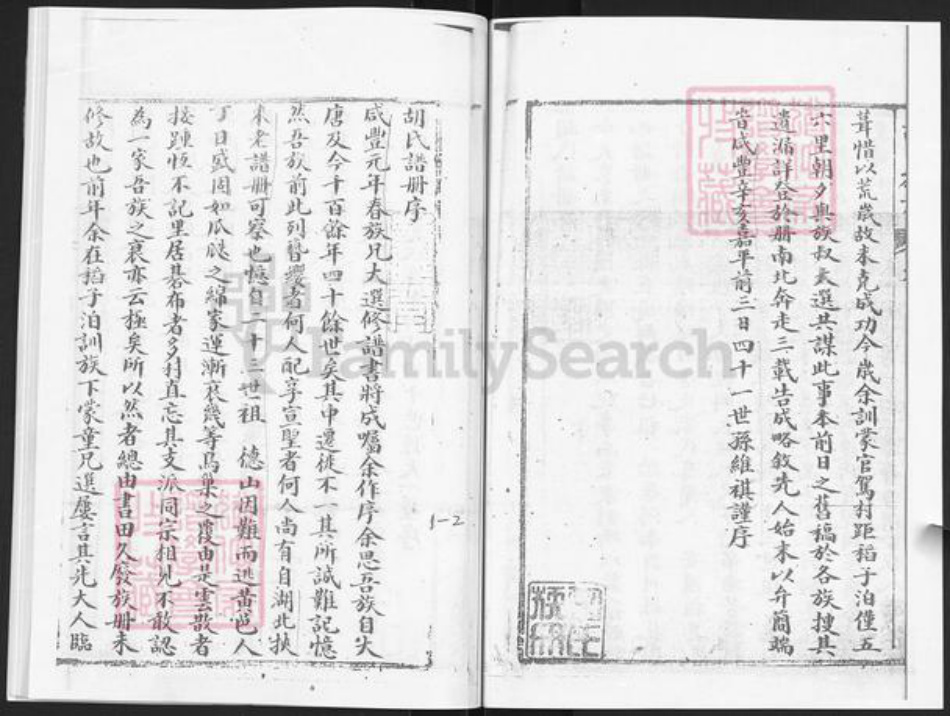 葺惜以荒歲故未克成功今歲余訓蒙官駕村距稻子泊僅五
六里朝夕與族叔大選共謀此事本前日之舊稿於各族捜其
遺漏詳登於册南北奔走三載告成略敘先人始末以弁簡端
旹咸豐辛亥嘉平前三日四十一世孫維祺謹序
胡氏譜册序
咸豐元年春族兄大選修譜書將成囑余作序余思吾族自大
唐及今千百餘年四十餘世矣其中遷徙不一其所誠難記憶
然吾族前此列簪纓者何人配享宣聖者何人尚有自湖北挾
來老譜册可察也憶自二十三世祖 德山因難而逃黃邑人
丁日盛固如瓜瓞之綿家運漸衰幾等鳥巢之覆由是雲散者
接踵恆不記里居碁布者多村直忘其支派同宗相見不敢認
為一家吾族之衰亦云極矣所以然者總由書田久廢族册未
修故也前年余在稻子泊訓族下蒙童兄選屢言其先大人臨
1-2
FamilySearch